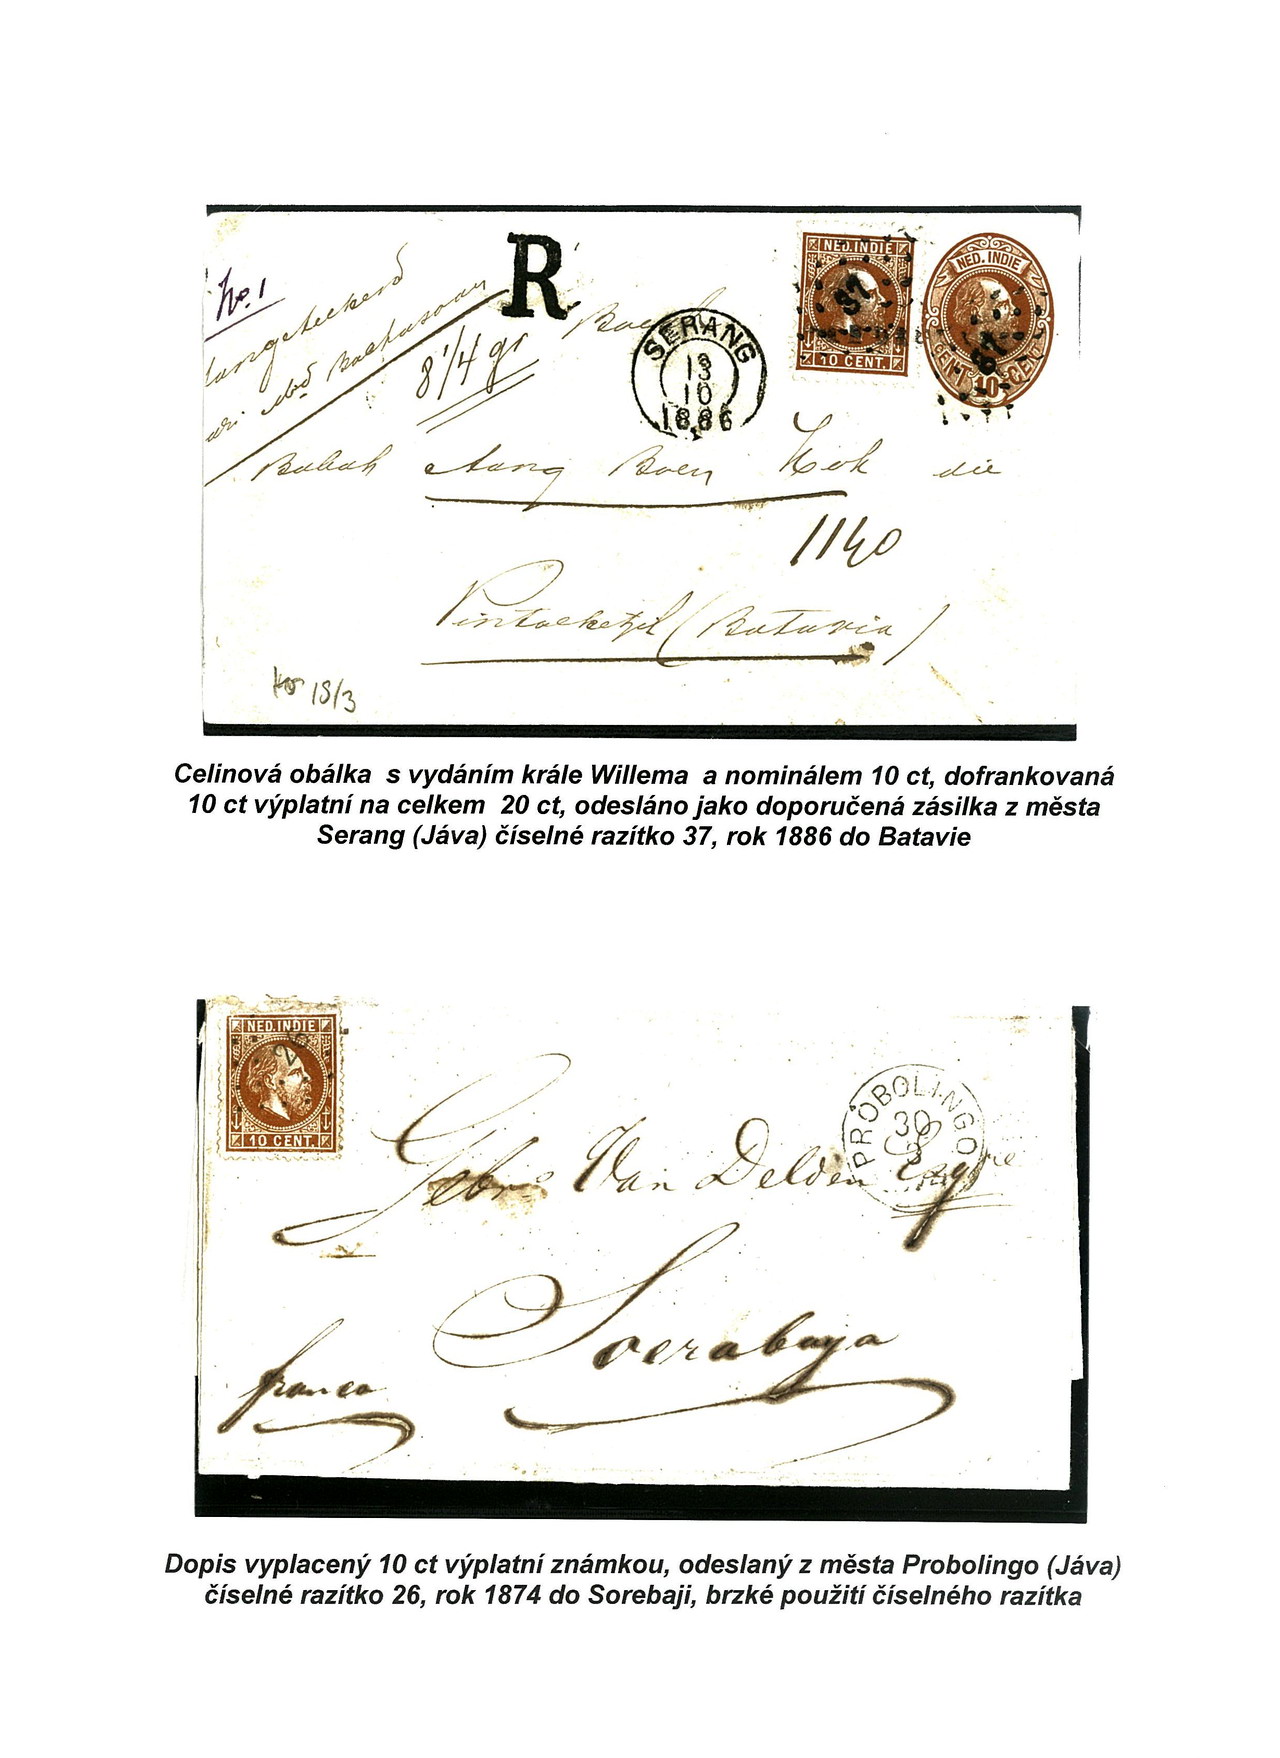 No. 1
R
Aangeteekend
8 1/4 gr
SERANG
13
10
1886
NED. INDIE
10 CENT.
37
NED. INDIE
10
37
Babah Boen Kok die
1140
(Batavia)
18/3
Celinová obálka s vydáním krále Willema a nominálem 10 ct, dofrankovaná
10 ct výplatní na celkem 20 ct, odesláno jako doporučená zásilka z města
Serang (Jáva) číselné razítko 37, rok 1886 do Batavie
NED. INDIE
26
10 CENT.
PROBOLINGO
30
Gebrs Van Delden
Soerabaya
franco
Dopis vyplacený 10 ct výplatní známkou, odeslaný z města Probolingo (Jáva)
číselné razítko 26, rok 1874 do Sorebaji, brzké použití číselného razítka